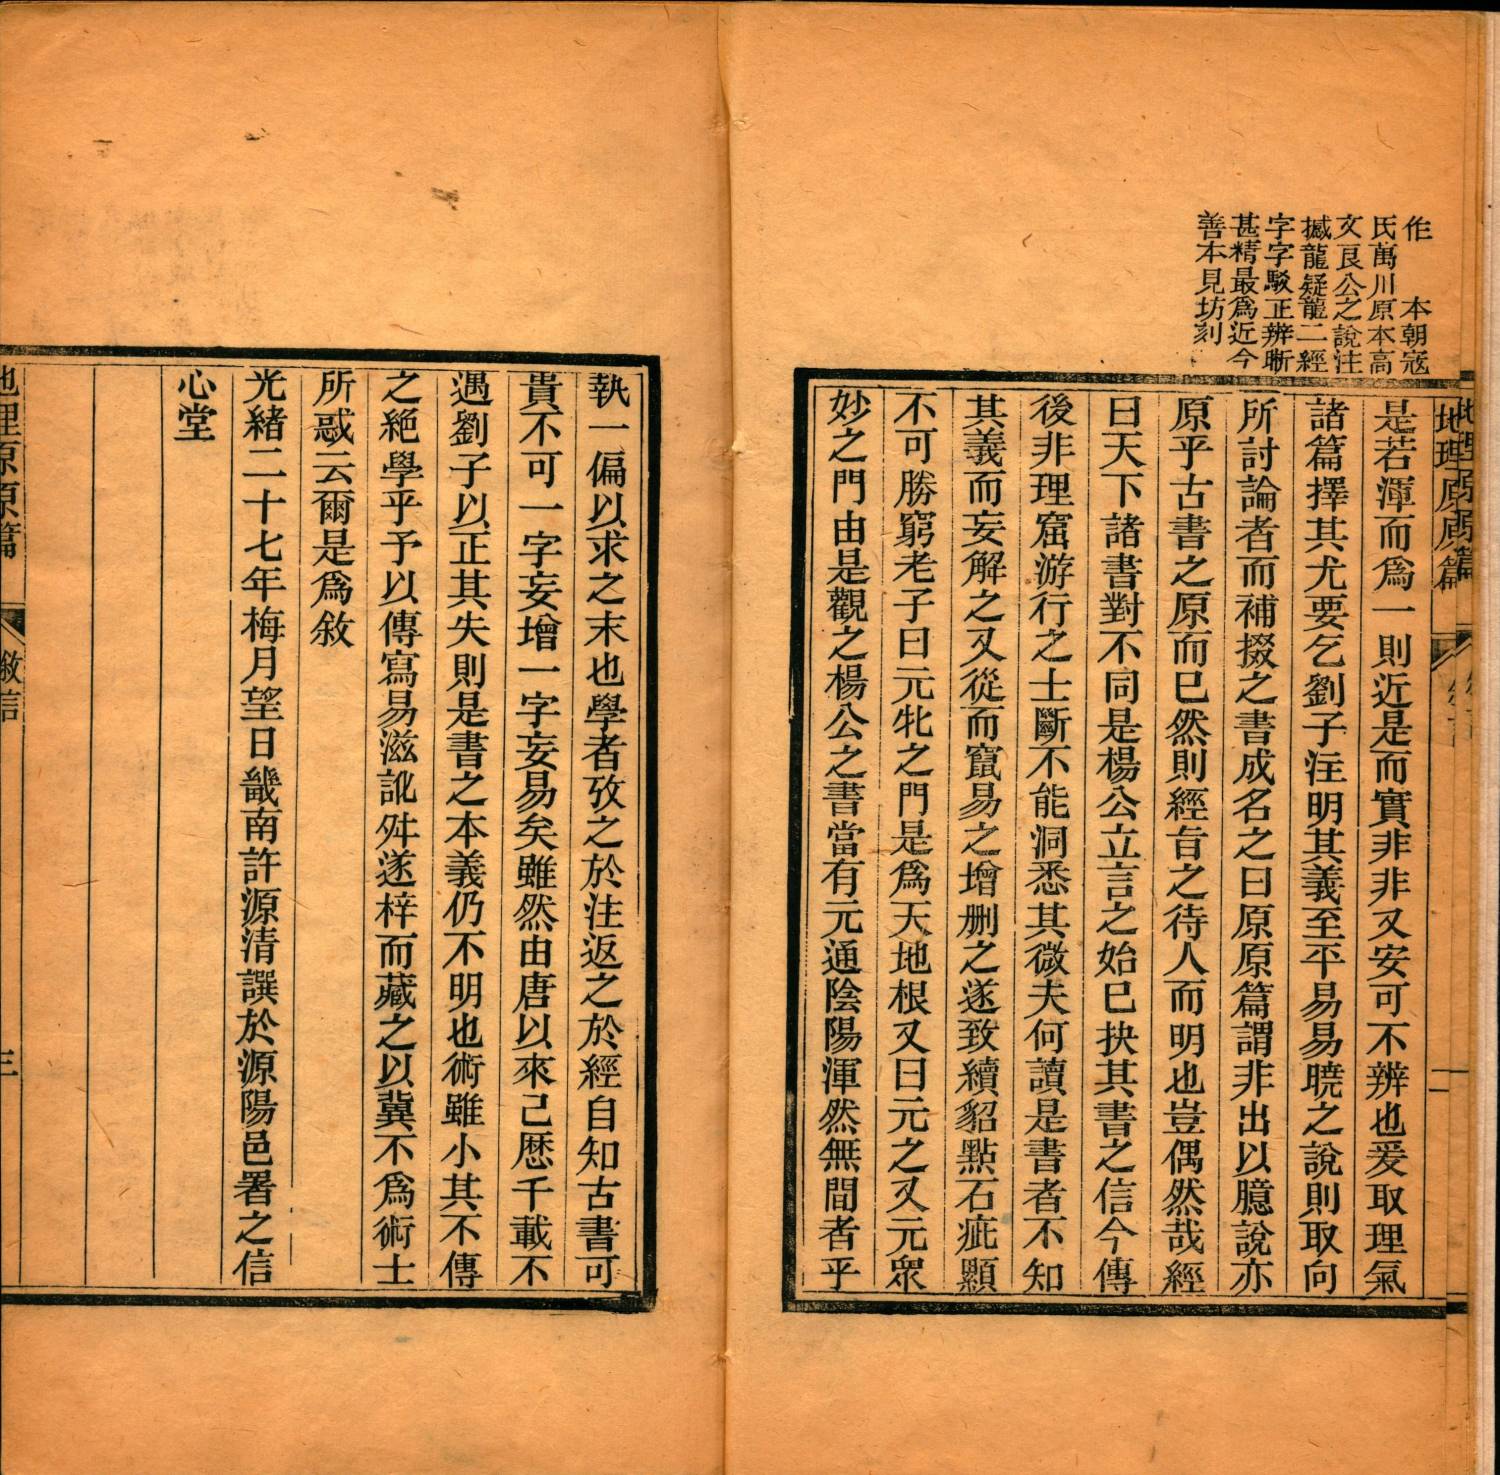 作　　本朝寇
氏萬川原本高
文良公之說注
撼龍疑龍二經
字字駁正辨晣
甚精最爲近今
善本見坊刻
地理原原篇
二
是若渾而爲一則近是而實非非又安可不辨也爰取理氣
諸篇擇其尤要乞劉子注明其義至平易易曉之說則取向
所討論者而補掇之書成名之曰原原篇謂非出以臆說亦
原乎古書之原而已然則經旨之待人而明也豈偶然哉經
曰天下諸書對不同是楊公立言之始已抉其書之信今傳
後非理窟游行之士斷不能洞悉其微夫何讀是書者不知
其義而妄解之又從而竄易之增刪之遂致續貂點石疵顯
不可勝窮老子曰元牝之門是爲天地根又曰元之又元衆
妙之門由是觀之楊公之書當有元通陰陽渾然無間者乎
執一偏以求之末也學者攷之於注返之於經自知古書可
貴不可一字妄增一字妄易矣雖然由唐以來已歷千載不
遇劉子以正其失則是書之本義仍不明也術雖小其不傳
之絕學乎予以傳寫易滋訛舛遂梓而藏之以冀不爲術士
所惑云爾是爲敘
光緒二十七年梅月望日畿南許源清譔於源陽邑署之信
心堂
地理原原篇
敘言
三